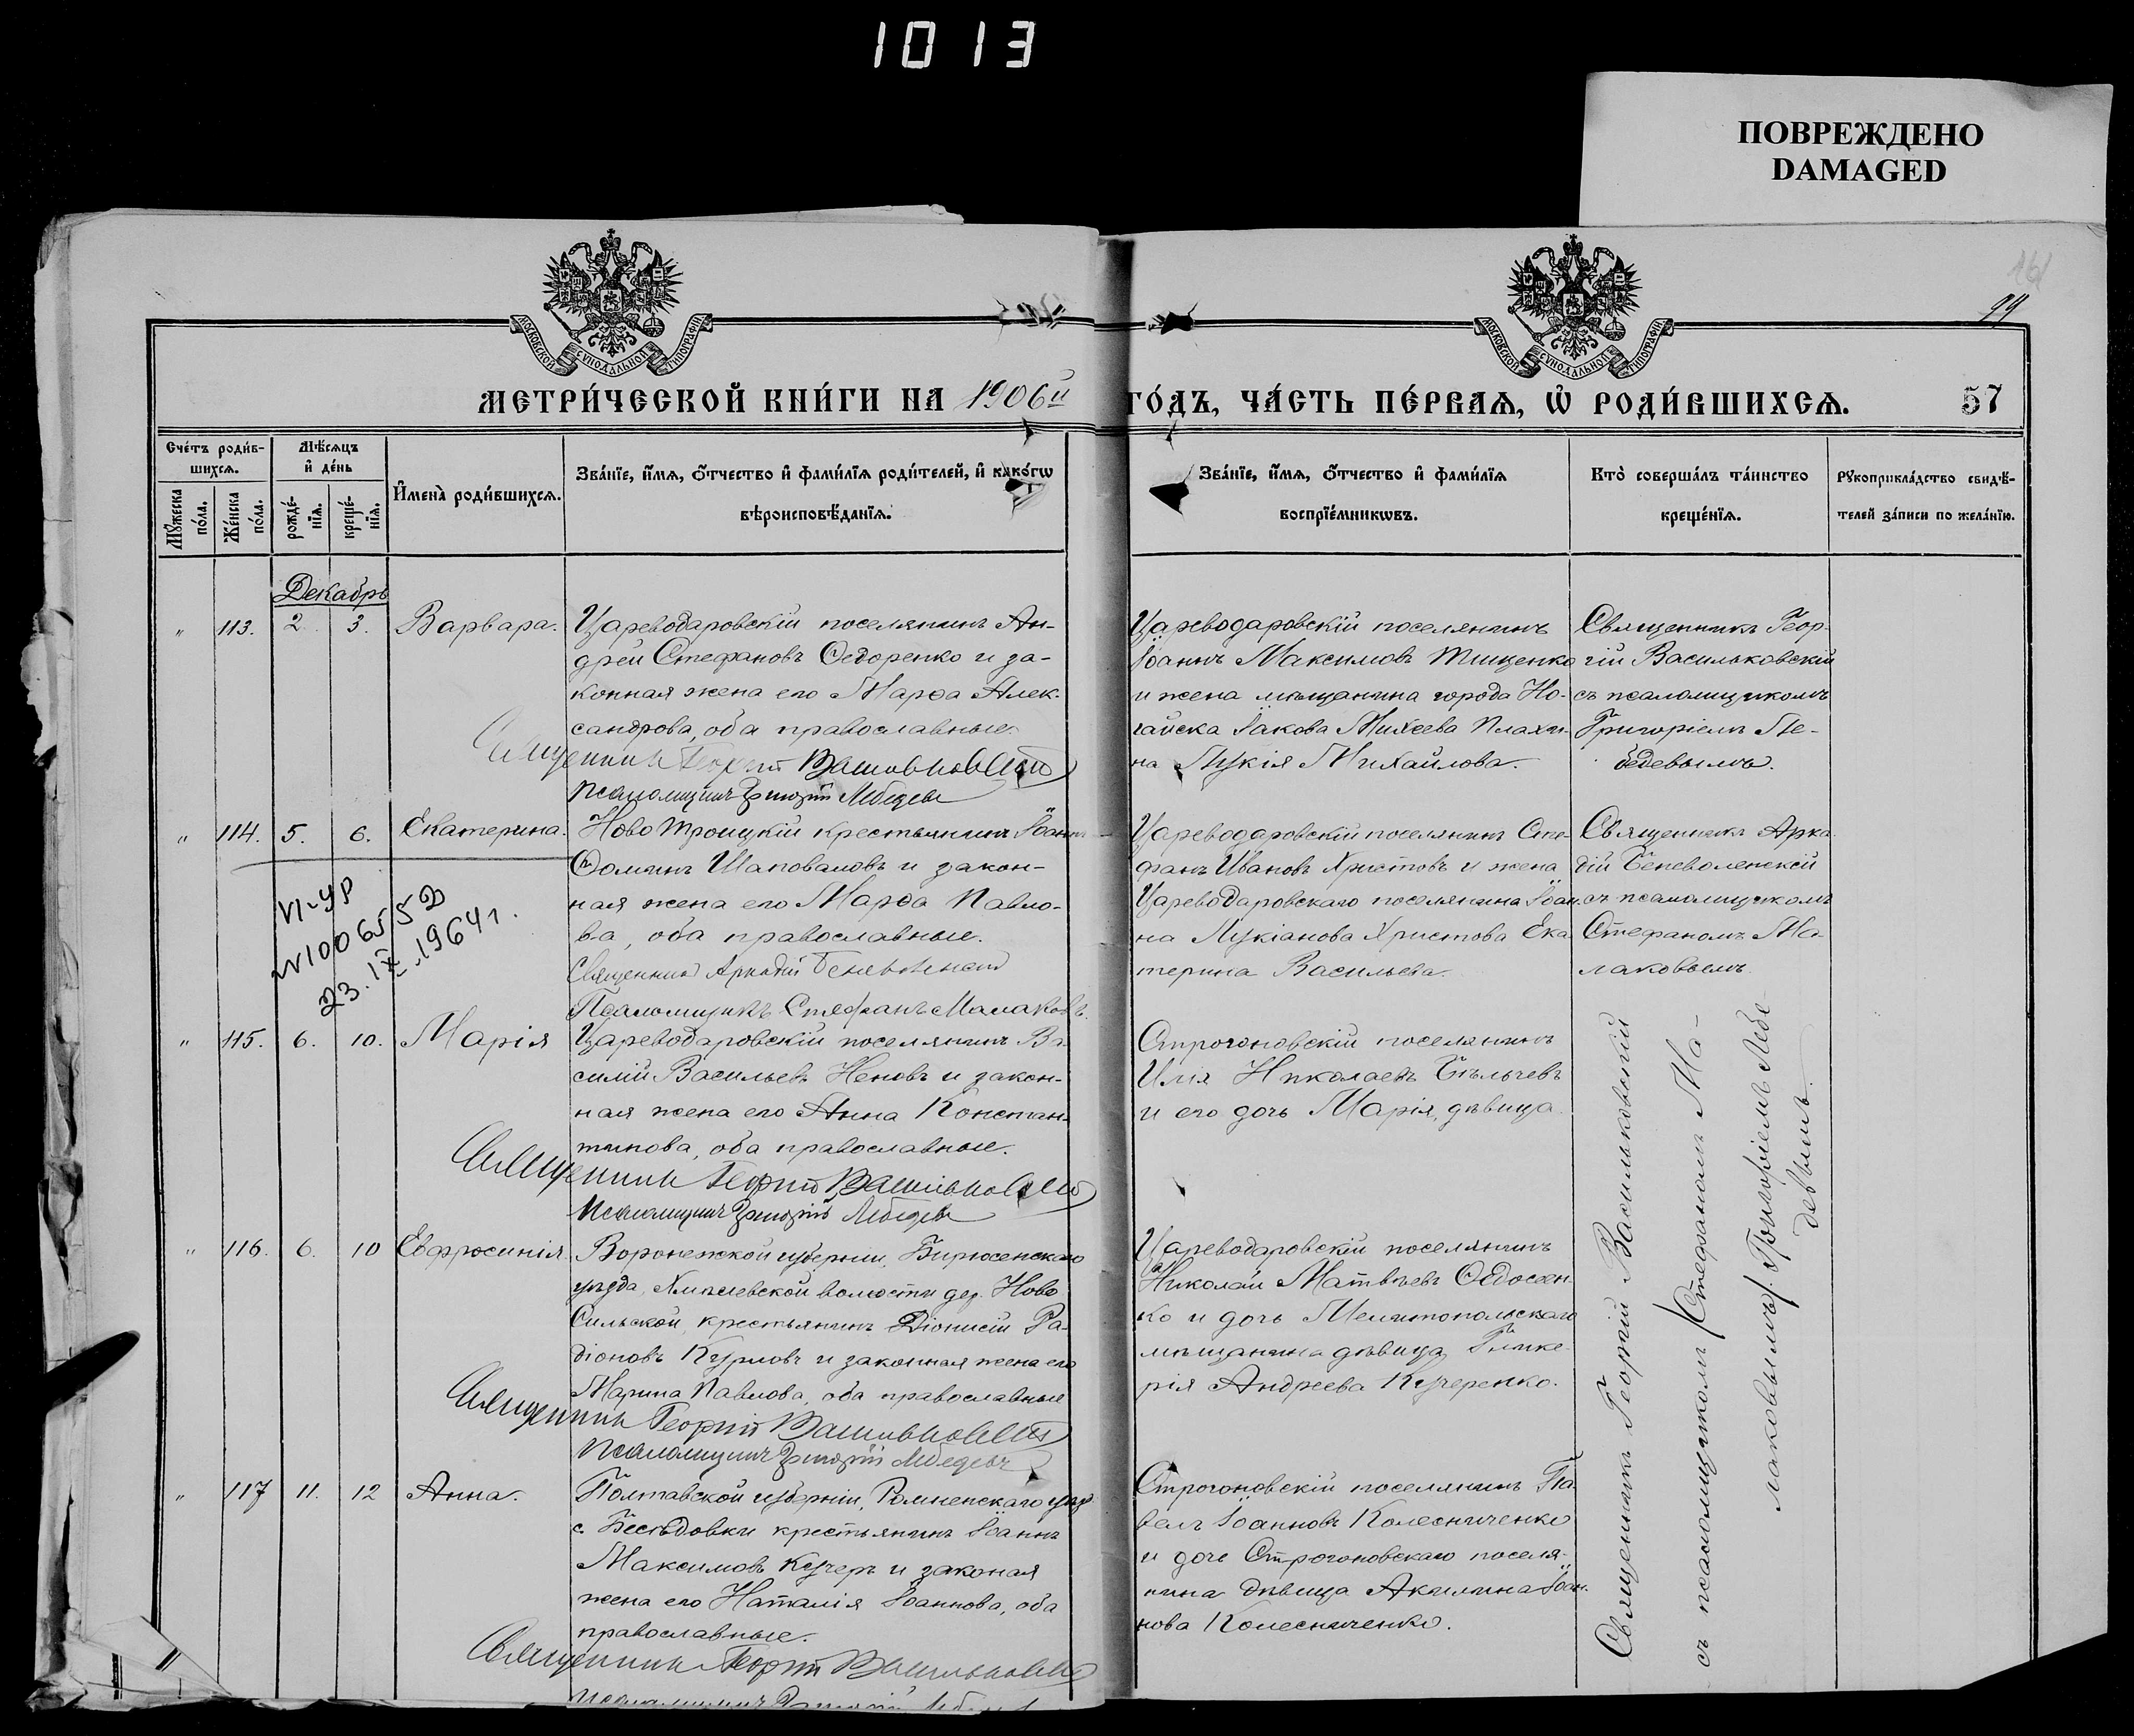 1013
ПОВРЕЖДЕНО
DAMAGED
161
99
МОСКОВСКОЙ СУНОДАЛЬНОЙ ТИПОГРАФІИ
МОСКОВСКОЙ СУНОДАЛЬНОЙ ТИПОГРАФІИ
МЕТРИ́ЧЕСКОЙ КНИ́ГИ НА 1906й ГО́ДЪ, ЧА́СТЬ ПЕ́РВАѦ, Ѡ҆ РОДИ́ВШИХСѦ. 57
Сче́тъ роди́в-
шихсѧ.
Мꙋ́жеска по́ла.
Же́нска по́ла.
Мѣ́сѧцъ
и҆ де́нь
рожде́-
нїѧ.
креще́-
нїѧ.
И҆мена̀ роди́вшихсѧ.
Зва́нїе, и҆́мѧ, ѻ҆́тчество и҆ фами́лїѧ роди́телей, и҆ како́гѡ
вѣроисповѣ́данїѧ.
Зва́нїе, и҆́мѧ, ѻ҆́тчество и҆ фами́лїѧ
воспрїе́мникѡвъ.
Кто̀ соверша́лъ та́инство
креще́нїѧ.
Рꙋкоприкла́дство свидѣ́-
телей за́писи по жела́нїю.
Декабрь
" 113. 2. 3. Варвара.
Цареводаровскій поселянинъ Ан-
дрей Стефановъ Ѳедоренко и за-
конная жена его Марѳа Алек-
сандрова, оба православные.
Священникъ Георгій Васильковскій
Псаломщикъ Григорій Лебедевъ
Цареводаровскій поселянинъ
Іоаннъ Максимовъ Тищенко
и жена мѣщанина города Но-
гайска Іакова Михеева Плахи-
на Лукія Михайлова.
Священникъ Геор-
гій Васильковскій
съ псаломщикомъ
Григоріемъ Ле-
бедевымъ.
" 114. 5. 6. Екатерина.
Ново Троицкій крестьянинъ Іоаннъ
Ѳоминъ Шаповаловъ и закон-
ная жена его Марѳа Павло-
ва, оба православные.
Священникъ Аркадій Беневоленскій
Псаломщикъ Стефанъ Малаковъ.
Цареводаровскій поселянинъ Сте-
фанъ Ивановъ Христовъ и жена
Цареводаровскаго поселянина Іоан-
на Лукіанова Христова Ека-
терина Васильева.
Священникъ Арка-
дій Беневоленскій
съ псаломщикомъ
Стефаномъ Ма-
лаковымъ.
VI-УР
N 1006552
23.IX.1964г.
" 115. 6. 10. Марія
Цареводаровскій поселянинъ Ва-
силій Васильевъ Неновъ и закон-
ная жена его Анна Констан-
тинова, оба православные.
Священникъ Георгій Васильковскій
Псаломщикъ Григорій Лебедевъ
Строгоновскій поселянинъ
Илія Николаевъ Бѣльчевъ
и его дочь Марія, дѣвица.
Священникъ Георгій Васильковскій
съ псаломщикомъ /Стефаномъ Ма-
лаковымъ/. Григоріемъ Лебе-
девымъ.
" 116. 6. 10 Евфросинія.
Воронежской губерніи, Бирюченскаго
уѣзда, волости дер. Ново
Сильской, крестьянинъ Діонисій Ра-
діоновъ Курловъ и законная жена его
Марина Павлова, оба православные
Священникъ Георгій Васильковскій
Псаломщикъ Григорій Лебедевъ
Цареводаровскій поселянинъ
Николай Матвѣевъ Овдосен-
ко и дочь Мелитопольскаго
мѣщанина дѣвица Глике-
рія Андреева Кучеренко.
" 117 11. 12 Анна.
Полтавской губерніи, Роменскаго уѣзд.
с. Бесѣдовки крестьянинъ Іоаннъ
Максимовъ Кучеръ и законая
жена его Наталія Іоаннова, оба
православные.
Священникъ Георгій Васильковскій
Псаломщикъ Григорій Лебедевъ
Строгоновскій поселянинъ Па-
велъ Іоанновъ Колесниченко
и дочь Строгоновскаго поселя-
нина дѣвица Акилина Іоан-
нова Колесниченко.